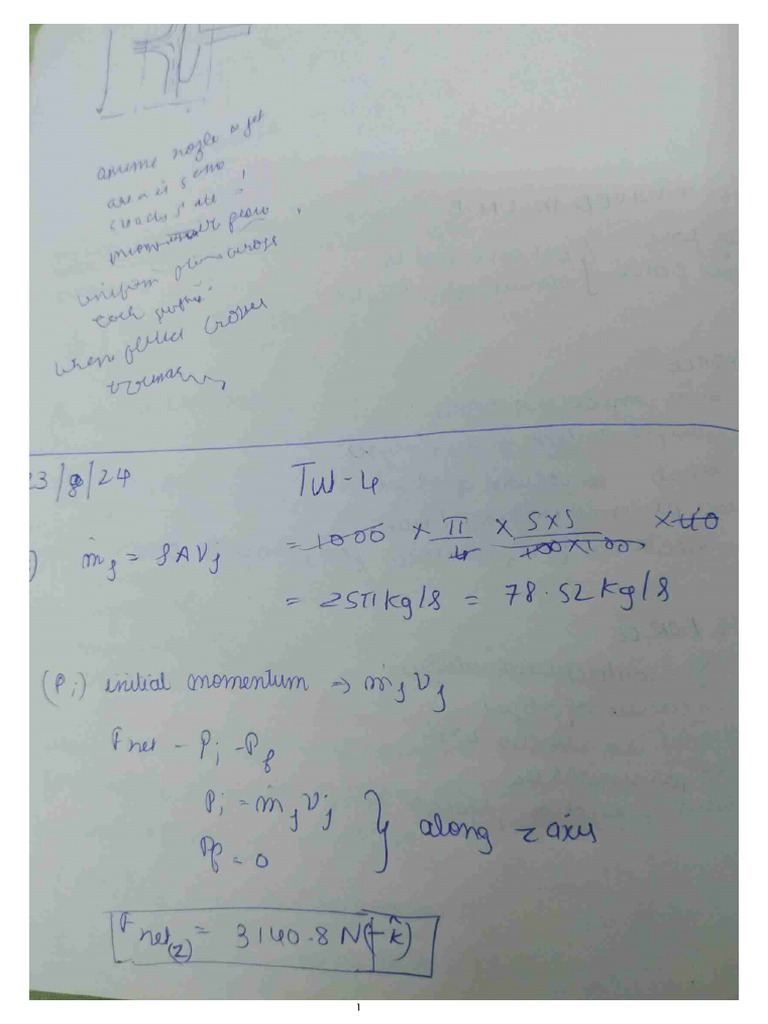 assume nozle & jet
area is same
steady state,
uniform flow across
each
when fluid crosses
23/8/24 Tut-4
ṁj = ρAVj = 1000 × π/4 × 5×5/100×100 × 40
= 25π kg/s = 78.52 kg/s
(Pi) initial momentum → ṁjVj
Fnet - Pi - Pf
Pi = ṁjVj
Pf = 0
} along z axis
Fnet(z) = 3140.8 N(-k̂)
1